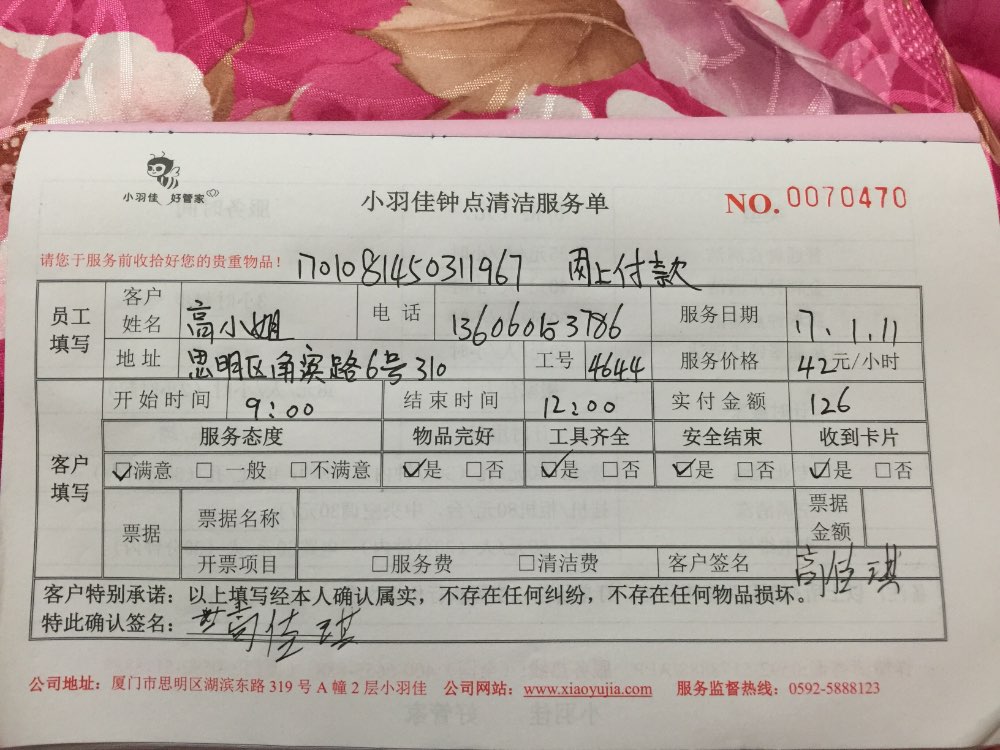 小羽佳 好管家
小羽佳钟点清洁服务单
NO. 0070470
请您于服务前收拾好您的贵重物品！ 1701081450311967 网上付款
员工填写 客户姓名 高小姐 电话 136060153786 服务日期 17.1.11
地址 思明区角滨路6号310 工号 4644 服务价格 42元/小时
客户填写 开始时间 9:00 结束时间 12:00 实付金额 126
服务态度 物品完好 工具齐全 安全结束 收到卡片
☑满意 □一般 □不满意 ☑是 □否 ☑是 □否 ☑是 □否 ☑是 □否
票据 票据名称 票据金额
开票项目 □服务费 □清洁费 客户签名 高佳琪
客户特别承诺：以上填写经本人确认属实，不存在任何纠纷，不存在任何物品损坏。
特此确认签名： 高佳琪
公司地址：厦门市思明区湖滨东路 319 号 A 幢 2 层小羽佳 公司网站：www.xiaoyujia.com 服务监督热线：0592-5888123